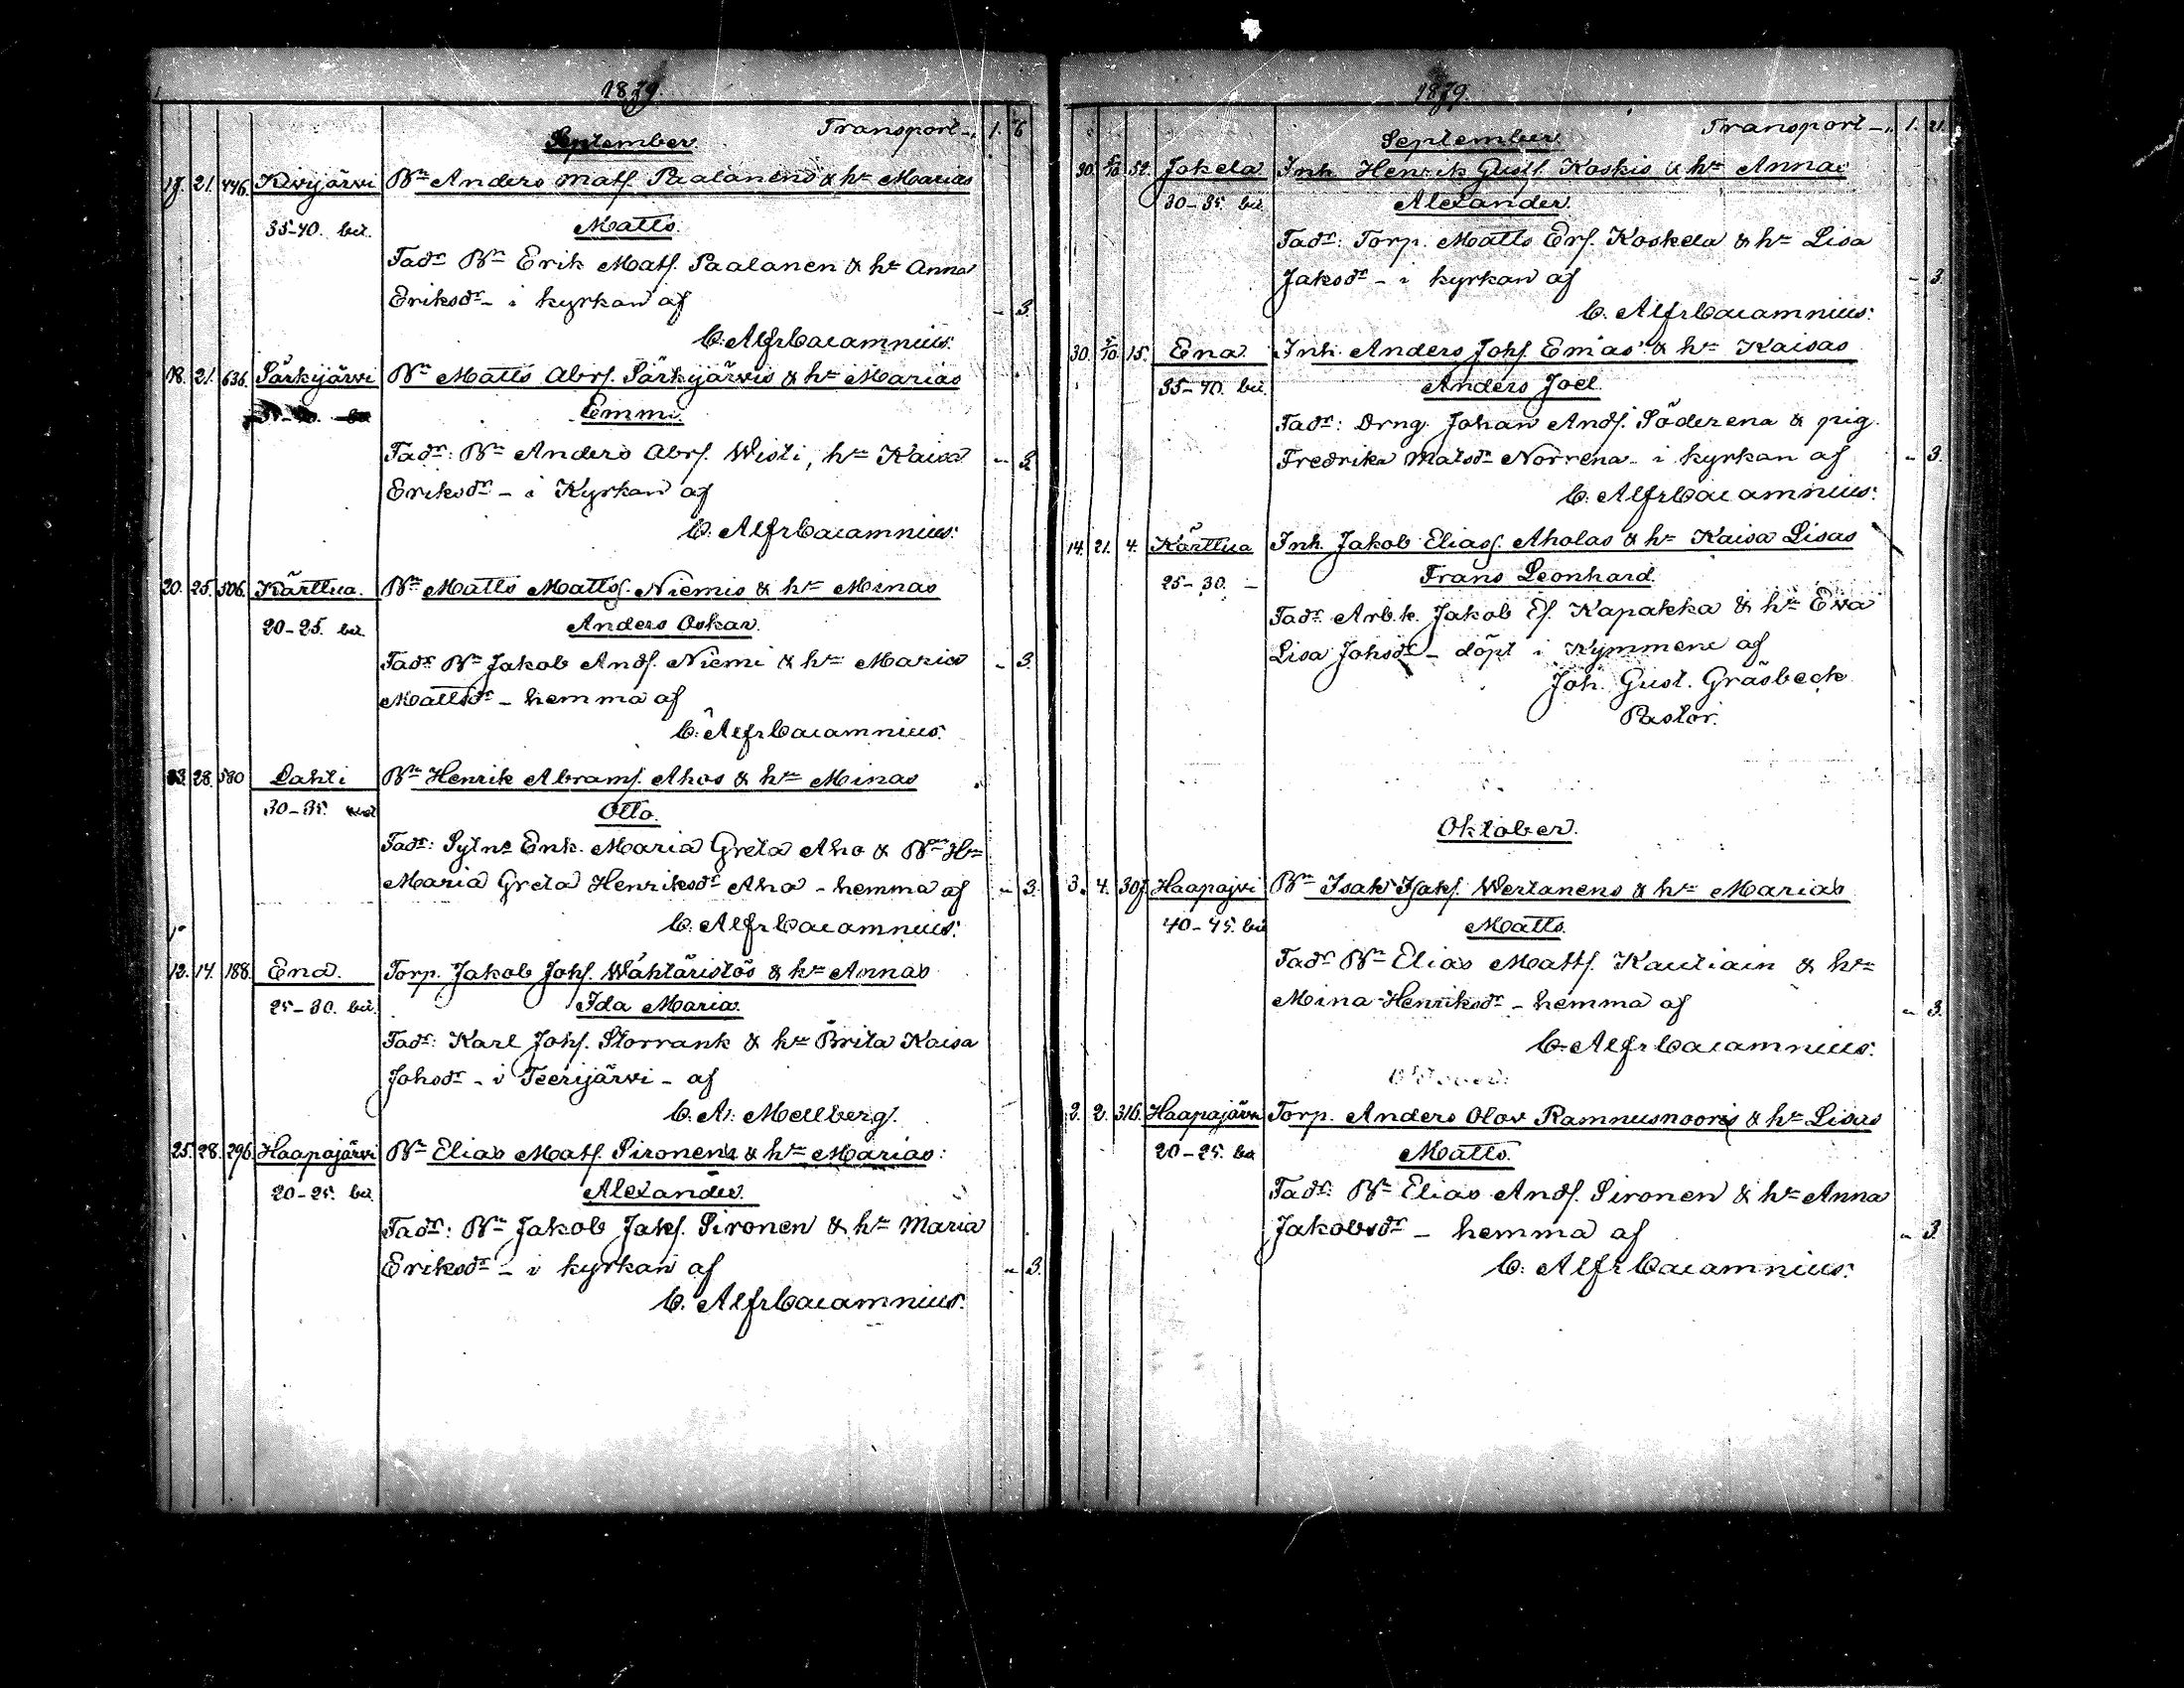 1879.
September. Transport - „ 1. 6
17. 21. 446. Kivijärvi Bn Anders Matss. Paalanens & hu Marias
35-40. bet. Matts.
Fadr Bn Erik Matss. Paalanen & hu Anna
Eriksdr - i kyrkan af - 3.
C. Alfr Cajamnius.
18. 21. 636. Särkijärvi Bn Matts Abrs. Särkijärvis & hu Marias
Emmi.
Fadr: Bn Anders Abrs. Wisti, hu Kaisa „ 3.
Eriksdr - i Kyrkan af
C. Alfr Cajamnius.
20. 25. 506. Kärttua. Bn Matts Mattss. Niemis & hu Minas
20-25. bet. Anders Oskar.
Fadr Bn Jakob Ands. Niemi & hu Maria - 3.
Mattsdr - hemma af
C. Alfr Cajamnius.
23. 28. 580 Lahti Bn Henrik Abrams. Ahos & hu Minas
30-35. Otto.
Fadr: Sytns Enk. Maria Greta Aho & Bn Hu
Maria Greta Henriksdr Aho - hemma af „ 3.
C. Alfr Cajamnius.
12. 14. 188. Ena. Torp. Jakob Johs. Wähtäristös & hu Annas
25-30. bet. Ida Maria.
Fadr: Karl Johs. Storrank & hu Brita Kaisa
Johsdr - i Teerijärvi - af
C. A. Mellberg.
25. 28. 296. Haapajärvi Bn Elias Mats. Sironens & hu Marias:
20-25. bet. Alexander.
Fadr: Bn Jakob Jaks. Sironen & hu Maria
Eriksdr - i kyrkan af „ 3.
C. Alfr Cajamnius.
1879.
September. Transport - „ 1. 21.
30. 5/10 52. Jokela Inh. Henrik Gusts. Koskis & hu Annas
30-35. bet. Alexander.
Fadr: Torp. Matts Ers. Koskela & hu Lisa
Jaksdr - i kyrkan af - 3.
C. Alfr Cajamnius.
30. 5/10. 15. Ena. Inh. Anders Johs. Emas & hu Kaisas
35-40. bet. Anders Joel.
Fadr: Drng. Johan Ands. Söderena & pig.
Fredrika Matsdr Norrena - i kyrkan af „ 3.
C. Alfr Cajamnius.
14. 21. 4. Kärttua Inh. Jakob Eliass. Aholas & hu Kaisa Lisas
25-30. - Frans Leonhard.
Fadr Arb.k. Jakob Es. Kapakka & hu Eva
Lisa Johsdr - döpt i Kymmene af
Joh. Gust. Gräsbeck
Pastor.
Oktober.
3. 4. 307. Haapajvi Bn Isak Isaks. Wertanens & hu Marias
40-45. bet. Matts.
Fadr Bn Elias Matts. Kautiain & hu
Mina Henriksdr - hemma af „ 3.
C. Alfr Cajamnius.
2. 2. 316. Haapajärvi Torp. Anders Olov Ramnusnooris & hu Lisas
20-25. bet. Matts.
Fadr: Bn Elias Ands. Sironen & hu Anna
Jakobsdr - hemma af „ 3.
C. Alfr Cajamnius.